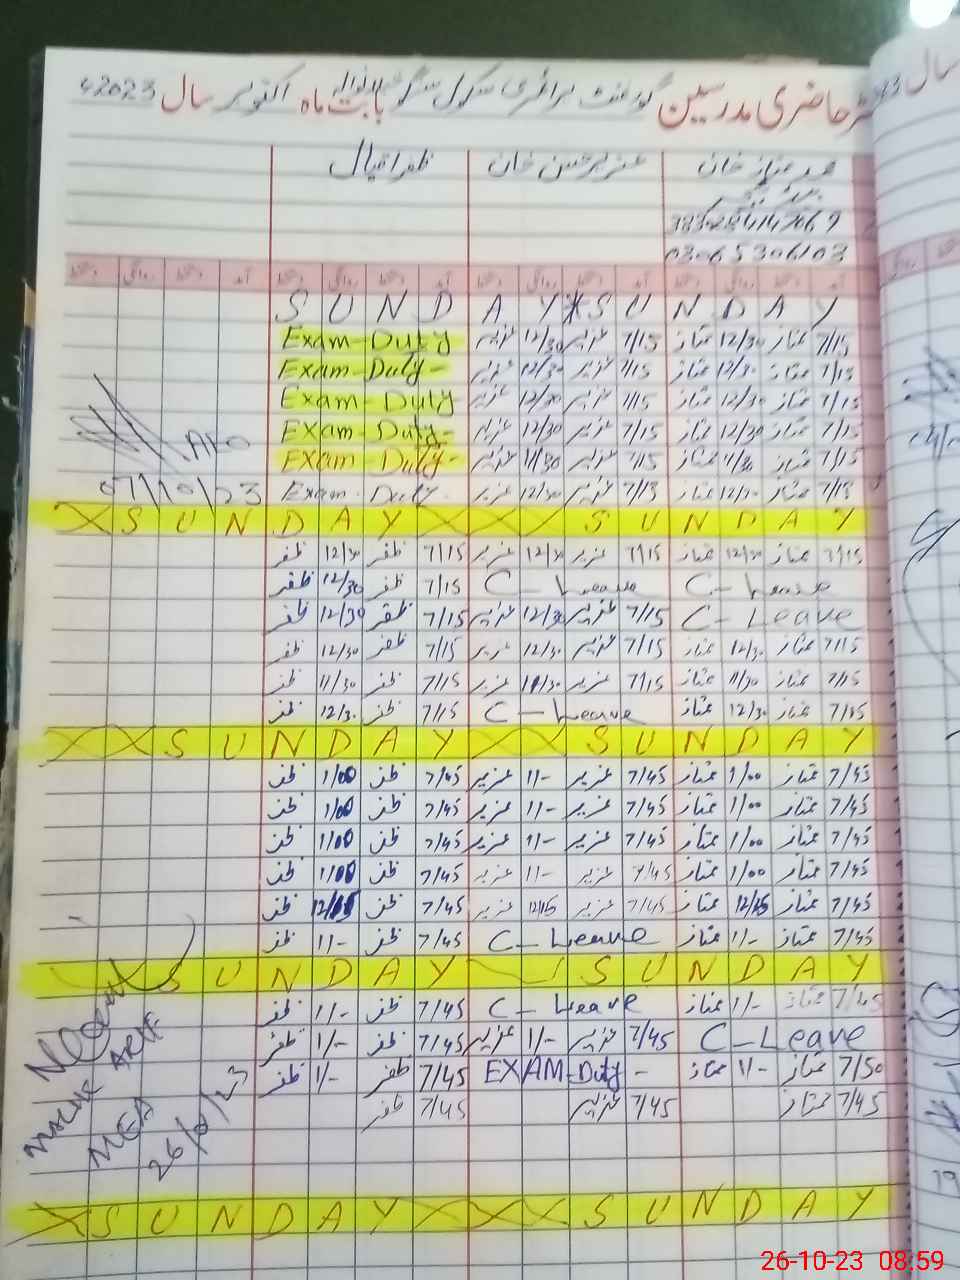 رجسٹر حاضری مدرسین گورنمنٹ پرائمری سکول بابت ماہ اکتوبر سال 2023ء
محمد ممتاز خان عزیر حسن خان ظفر اقبال
03065306103
آمد دستخط روانگی دستخط آمد دستخط روانگی دستخط آمد دستخط روانگی دستخط آمد دستخط روانگی دستخط
S U N D A Y * S U N D A Y
7/15 ممتاز 12/30 ممتاز 7/15 عزیر 12/30 عزیر Exam - Duty
7/15 ممتاز 12/30 ممتاز 7/15 عزیر 12/30 عزیر Exam - Duty -
7/15 ممتاز 12/30 ممتاز 7/15 عزیر 12/30 عزیر Exam - Duty
7/15 ممتاز 12/30 ممتاز 7/15 عزیر 12/30 عزیر Exam - Duty -
7/15 ممتاز 11/30 ممتاز 7/15 عزیر 11/30 عزیر Exam - Duty -
7/15 ممتاز 12/30 ممتاز 7/15 عزیر 12/30 عزیر Exam - Duty -
07/10/23
X S U N D A Y X X X S U N D A Y
7/15 ممتاز 12/30 ممتاز 7/15 عزیر 12/30 عزیر 7/15 ظفر 12/30 ظفر
C - Leave C - Leave 7/15 ظفر 12/30 ظفر
C - Leave 7/15 عزیر 12/30 عزیر 7/15 ظفر 12/30 ظفر
7/15 ممتاز 12/30 ممتاز 7/15 عزیر 12/30 عزیر 7/15 ظفر 12/30 ظفر
7/15 ممتاز 11/30 ممتاز 7/15 عزیر 11/30 عزیر 7/15 ظفر 11/30 ظفر
7/15 ممتاز 12/30 ممتاز C - Leave 7/15 ظفر 12/30 ظفر
X X S U N D A Y X X S U N D A Y
7/45 ممتاز 1/00 ممتاز 7/45 عزیر 1/- عزیر 7/45 ظفر 1/00 ظفر
7/45 ممتاز 1/00 ممتاز 7/45 عزیر 1/- عزیر 7/45 ظفر 1/00 ظفر
7/45 ممتاز 1/00 ممتاز 7/45 عزیر 1/- عزیر 7/45 ظفر 1/00 ظفر
7/45 ممتاز 1/00 ممتاز 7/45 عزیر 1/- عزیر 7/45 ظفر 1/00 ظفر
7/45 ممتاز 12/15 ممتاز 7/45 عزیر 12/15 عزیر 7/45 ظفر 12/15 ظفر
7/45 ممتاز 1/- ممتاز C - Leave 7/45 ظفر 1/- ظفر
S U N D A Y S U N D A Y
7/45 ممتاز 1/- ممتاز C - Leave 7/45 ظفر 1/- ظفر
C - Leave 7/45 عزیر 1/- عزیر 7/45 ظفر 1/- ظفر
7/50 ممتاز 1/- ممتاز EXAM - Duty - 7/45 ظفر 1/- ظفر
7/45 ممتاز 7/45 عزیر 7/45 ظفر
MEA
26/10/23
X S U N D A Y X X X S U N D A Y
26-10-23 08:59